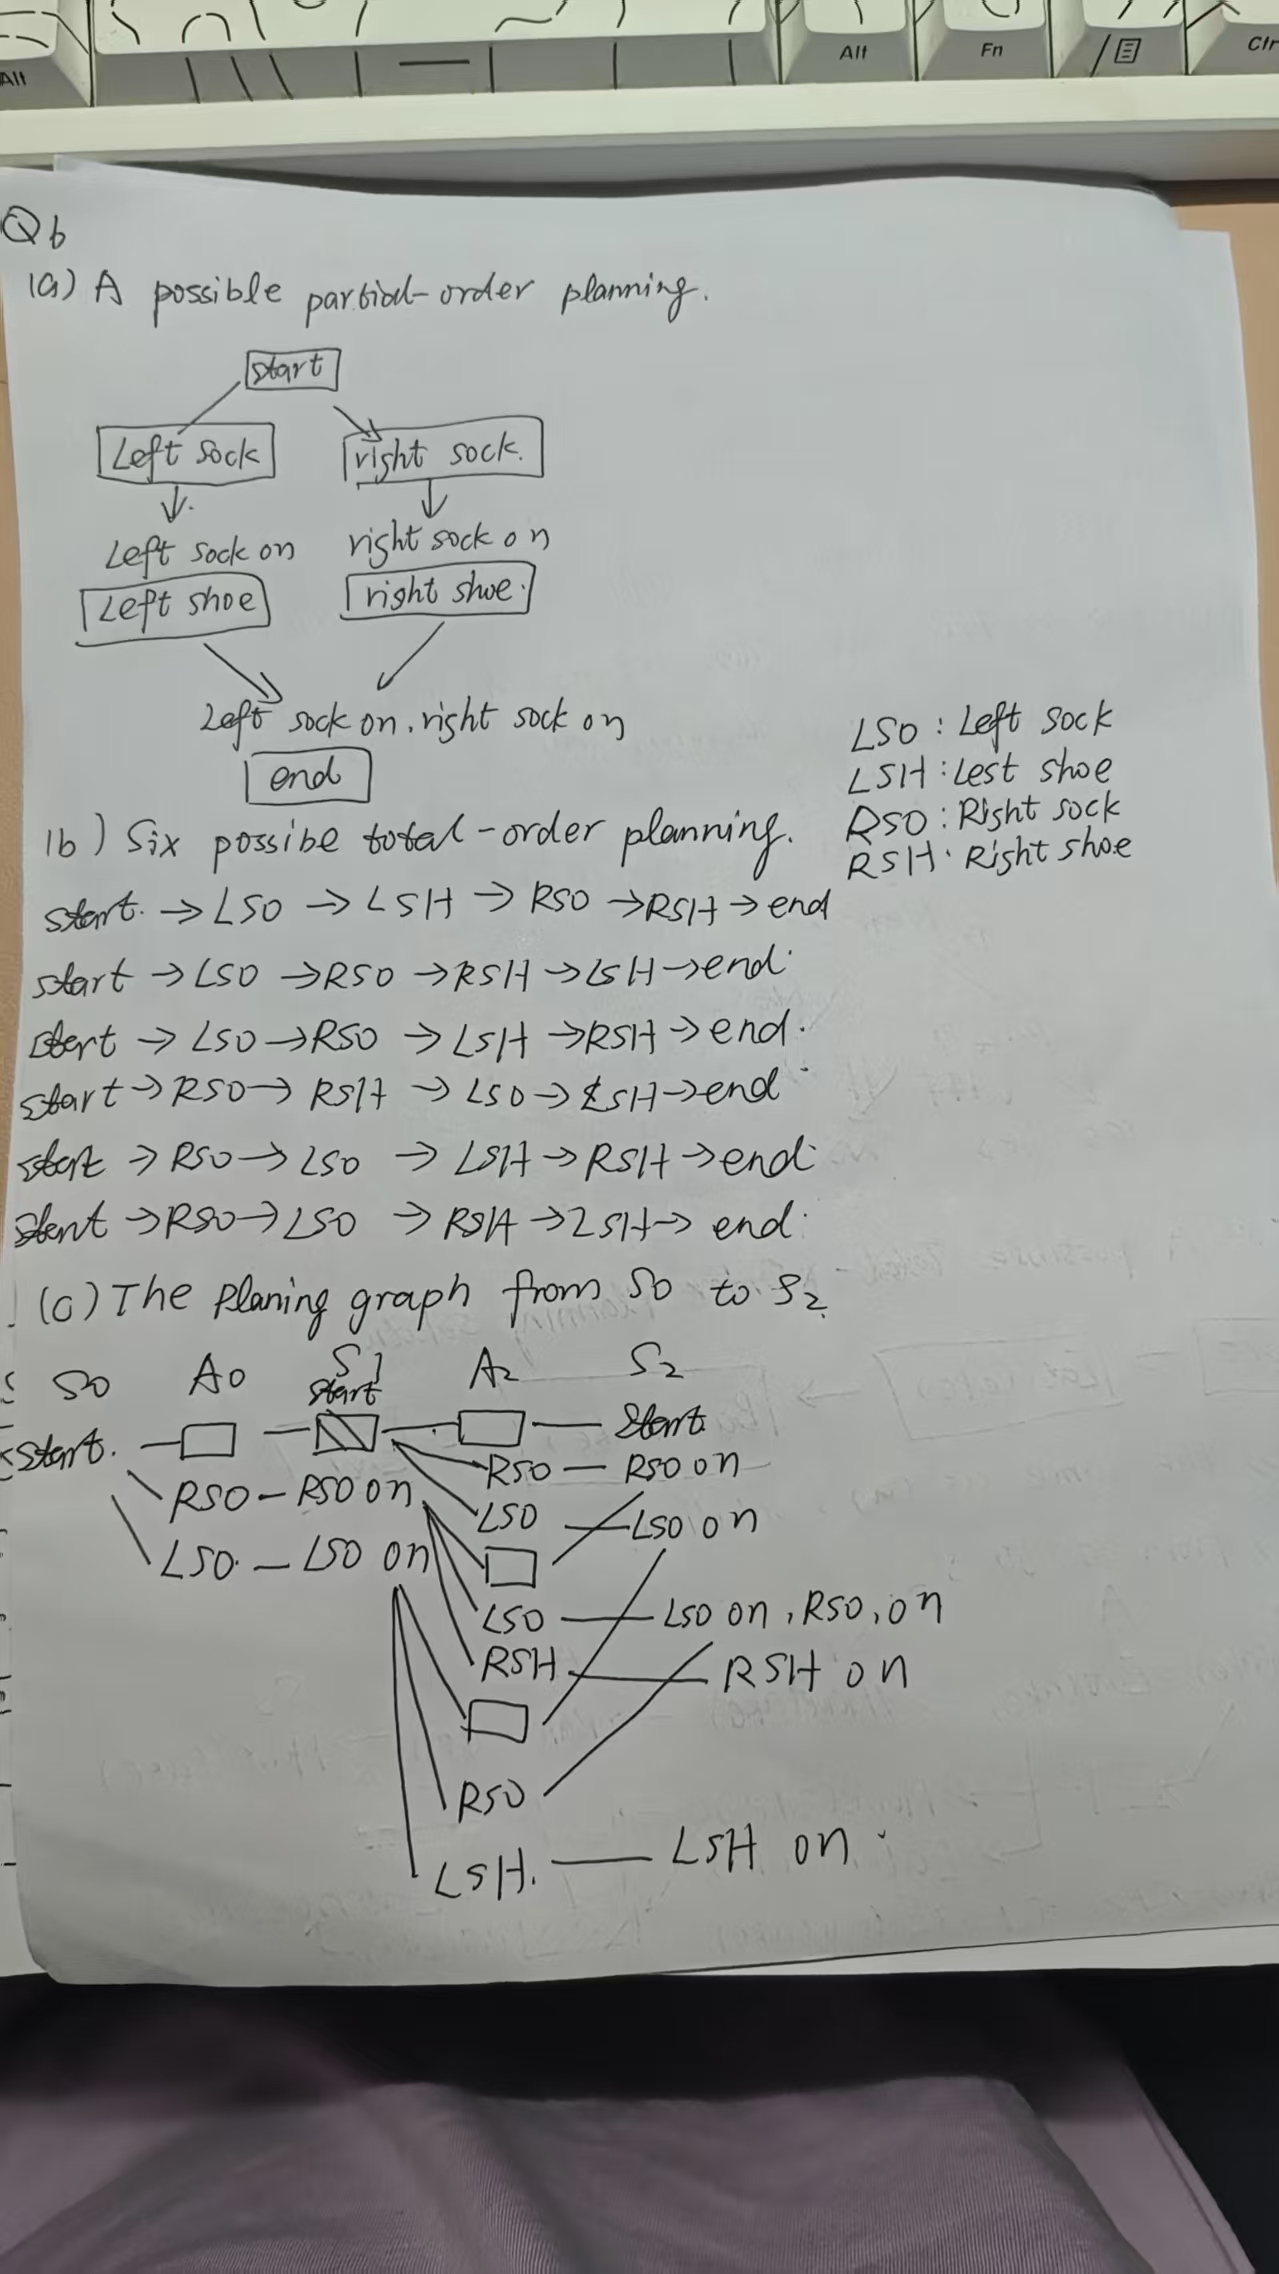 Alt
Alt
Fn
Ctr
Q6
(a) A possible partial-order planning.
start
Left sock
right sock.
Left sock on
right sock on
Left shoe
right shoe.
Left sock on, right sock on
end
LSO : Left sock
LSH : Lest shoe
RSO : Right sock
RSH : Right shoe
(b) Six possibe total-order planning.
start. → LSO → LSH → RSO → RSH → end
start → LSO → RSO → RSH → LSH → end.
start → LSO → RSO → LSH → RSH → end.
start → RSO → RSH → LSO → LSH → end
start → RSO → LSO → LSH → RSH → end
start → RSO → LSO → RSH → LSH → end.
(c) The Planing graph from S0 to S2
S0 A0 S1 A2 S2
start
start. Start.
RSO — RSO on
RSO — RSO on
LSO
LSO on
LSO. — LSO on
LSO — LSO on, RSO, on
RSH
RSH on
RSO
LSH. — LSH on.